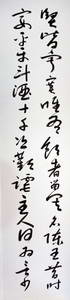 賢皆寂寞唯有飲者留其名陳王昔時
宴平樂斗酒十千恣歡謔主人何為言少